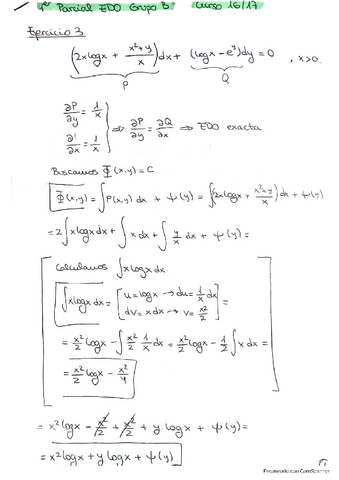 1er Parcial EDO Grupo B. Curso 16/17
Ejercicio 3
(2xlogx + (x²+y)/x) dx + (logx - e^y) dy = 0 , x>0.
P Q
∂P/∂y = 1/x
∂Q/∂x = 1/x } ⇒ ∂P/∂y = ∂Q/∂x ⇒ EDO exacta
Buscamos Φ(x,y) = C
Φ(x,y) = ∫P(x,y) dx + Ψ(y) = ∫(2xlogx + (x²+y)/x) dx + Ψ(y)
= 2∫xlogx dx + ∫x dx + ∫y/x dx + Ψ(y) =
Calculamos ∫xlogx dx.
∫xlogx dx = [u = logx → du = 1/x dx
dv = x dx → v = x²/2] =
= x²/2 logx - ∫x²/2 1/x dx = x²/2 logx - 1/2 ∫x dx =
= x²/2 logx - x²/4
= x² logx - x²/2 + x²/2 + y logx + Ψ(y) =
= x² logx + y logx + Ψ(y)
Escaneado con CamScanner